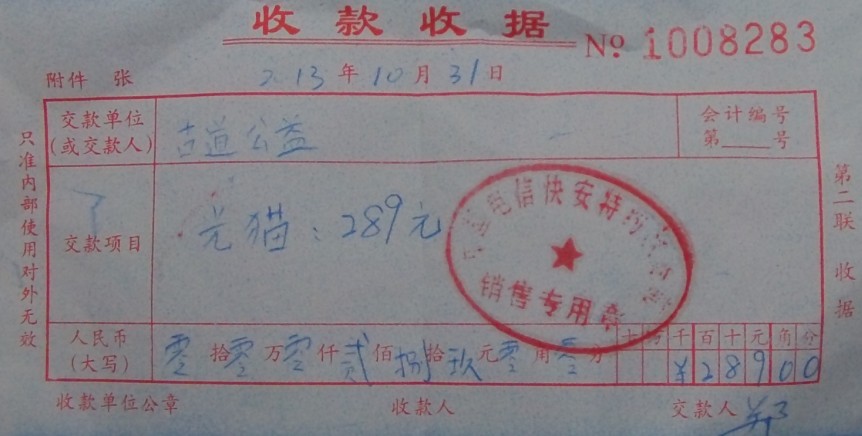 收款收据
№ 1008283
附件 张 2013年10月31日
交款单位(或交款人) 古道公益 会计编号 第____号
交款项目 光猫：289元
电信快安特约
销售专用章
人民币(大写) 零拾零万零仟贰佰捌拾玖元零角零分 十万千百十元角分
¥28900
收款单位公章 收款人 交款人
只准内部使用对外无效
第二联 收据